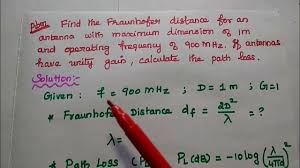 Pbm: Find the Fraunhofer distance for an
antenna with maximum dimension of 1m
and operating frequency of 900 MHz. If antennas
have unity gain, calculate the path loss.
Solution:-
Given : f = 900 MHz ; D = 1m ; G=1
* Fraunhofer Distance df = 2D²/λ = ?
λ =
* Path Loss PL(dB) = -10 log(λ²/4π